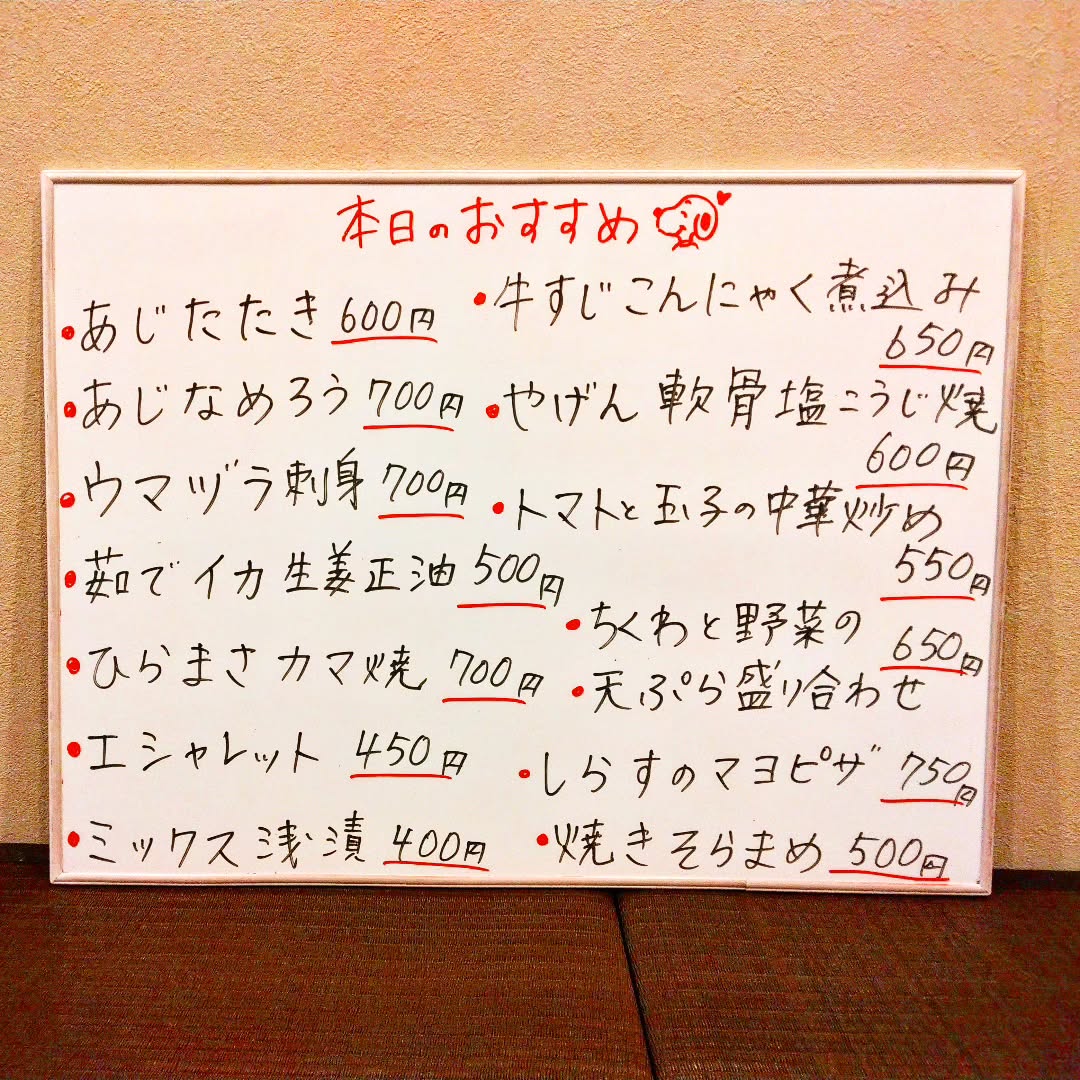 本日のおすすめ
・あじたたき 600円
・あじなめろう 700円
・ウマヅラ刺身 700円
・茹でイカ生姜正油 500円
・ひらまさカマ焼 700円
・エシャレット 450円
・ミックス浅漬 400円
・牛すじこんにゃく煮込み
650円
・やげん軟骨塩こうじ焼
600円
・トマトと玉子の中華炒め
550円
・ちくわと野菜の 650円
・天ぷら盛り合わせ
・しらすのマヨピザ 750円
・焼きそらまめ 500円